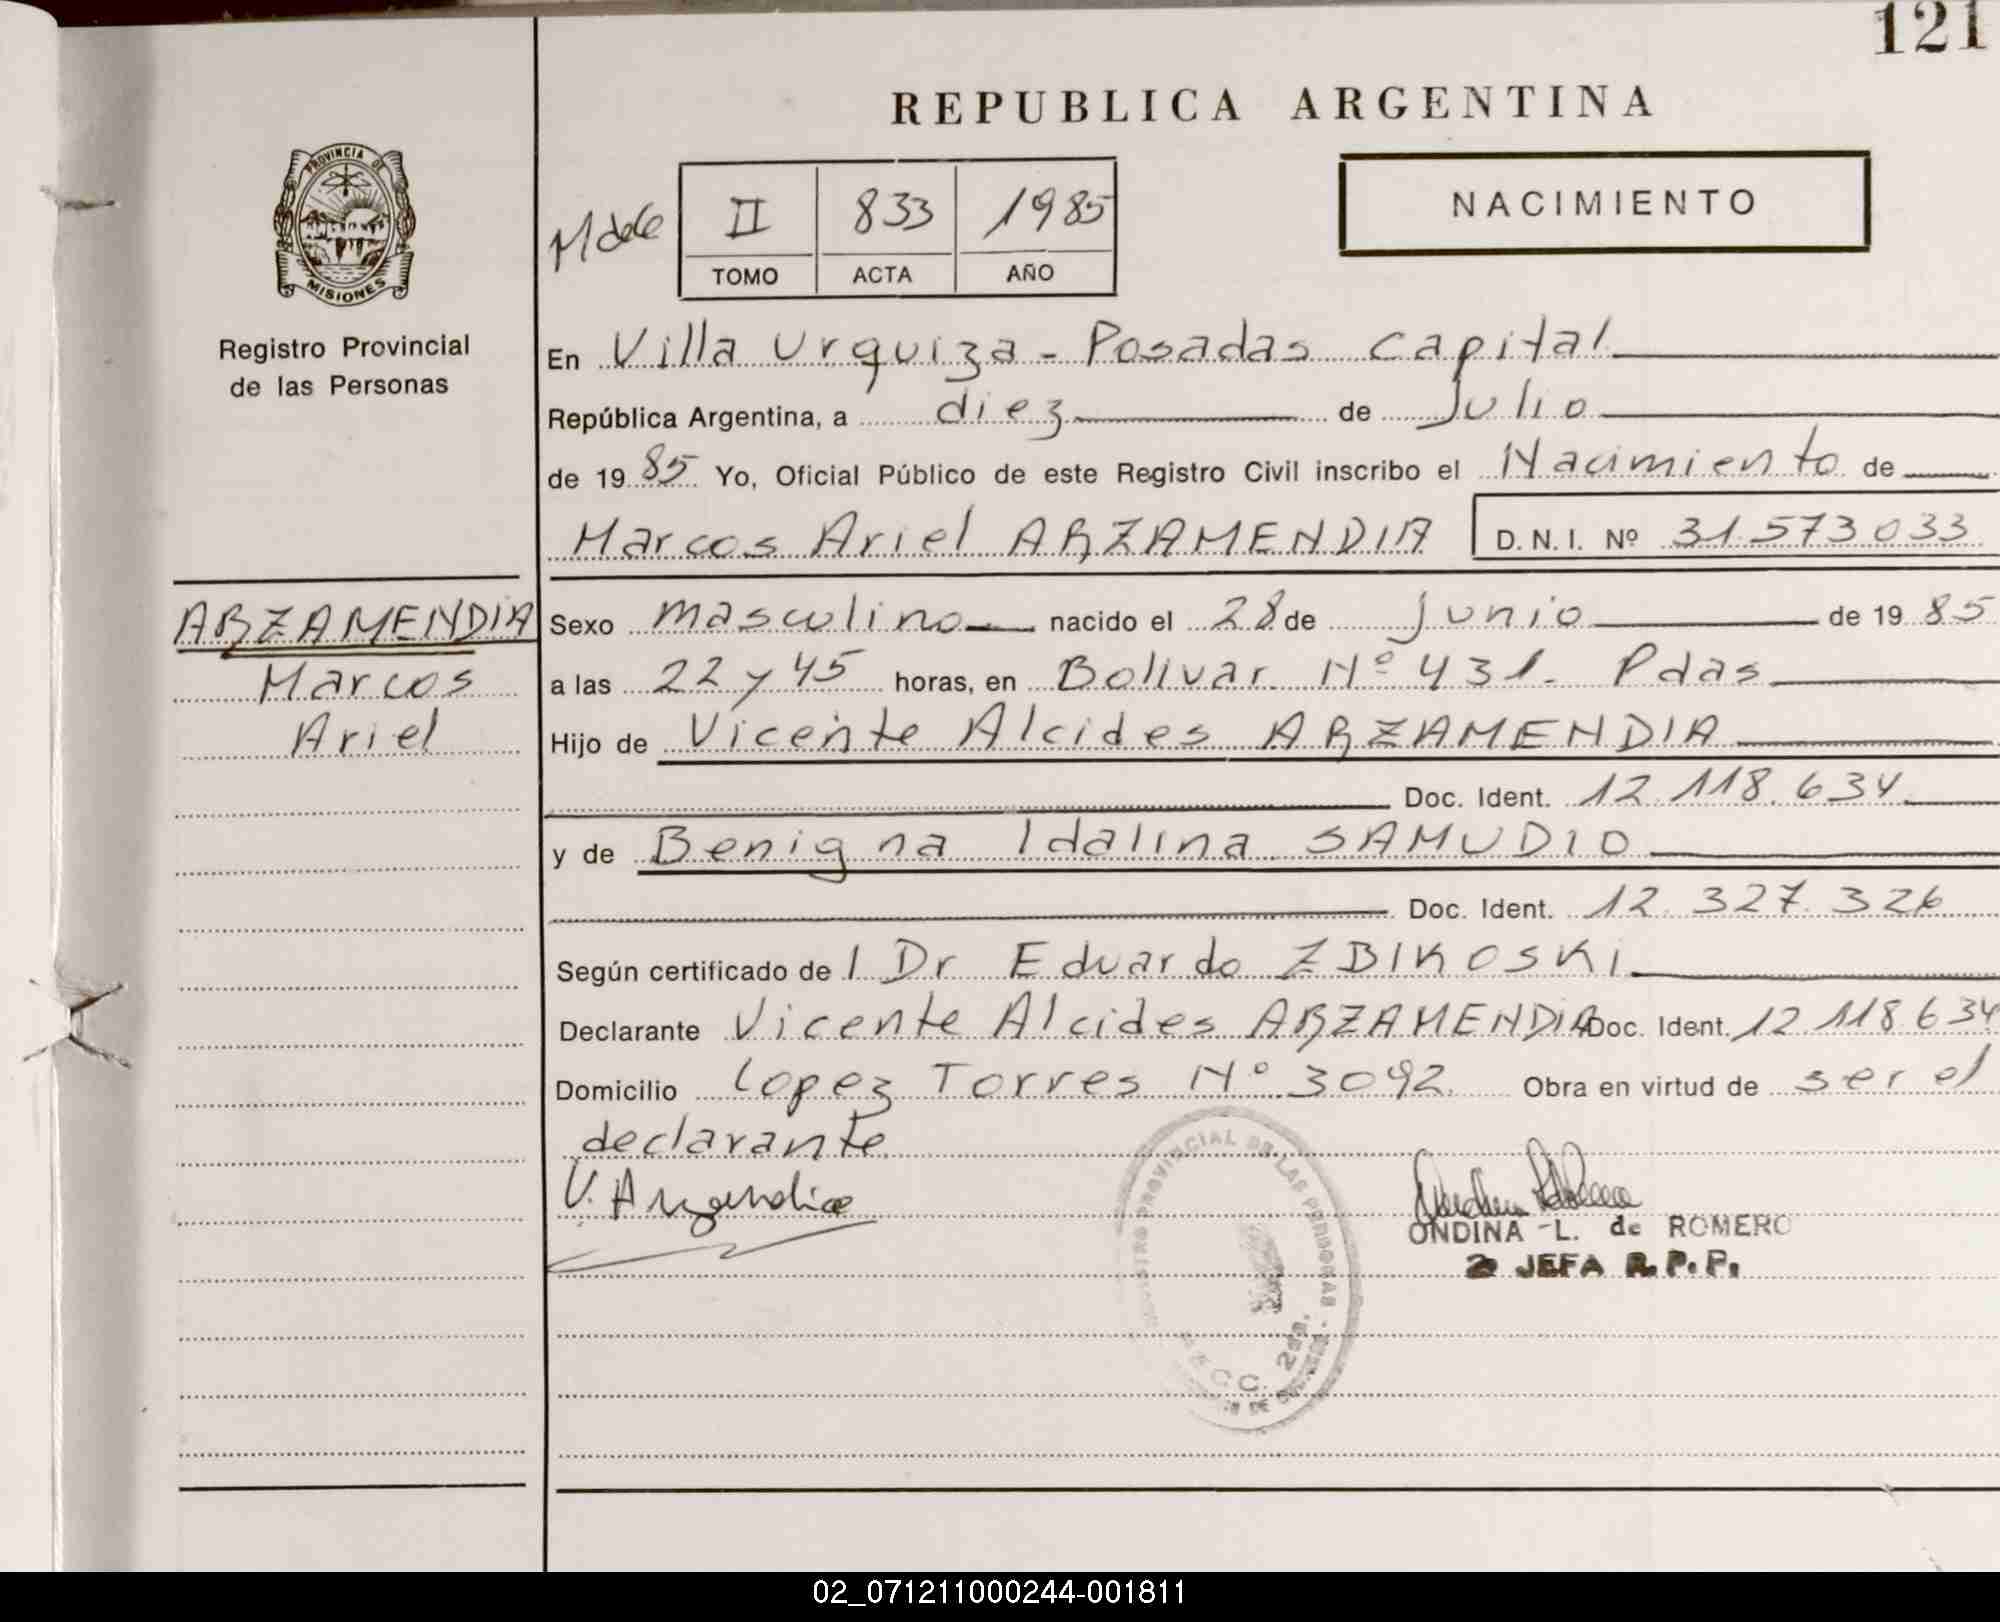 121
REPUBLICA ARGENTINA
PROVINCIA DE
MISIONES
Registro Provincial
de las Personas
II 833 1985
TOMO ACTA AÑO
NACIMIENTO
En Villa Urquiza - Posadas Capital
República Argentina, a diez de Julio
de 1985 Yo, Oficial Público de este Registro Civil inscribo el Nacimiento de
Marcos Ariel ARZAMENDIA D.N.I. Nº 31.573.033
ARZAMENDIA
Marcos
Ariel
Sexo masculino nacido el 28 de Junio de 1985
a las 22 y 45 horas, en Bolivar Nº 431. Pdas
Hijo de Vicente Alcides ARZAMENDIA
Doc. Ident. 12.118.634
y de Benigna Idalina SAMUDIO
Doc. Ident. 12.327.326
Según certificado del Dr Eduardo ZBIKOSKI
Declarante Vicente Alcides ARZAMENDIA Doc. Ident. 12.118.634
Domicilio Lopez Torres Nº 3092. Obra en virtud de ser el
declarante
V. Arzamendia
PROVINCIAL DE LAS PERSONAS
2da.
ONDINA L. de ROMERO
2 JEFA R.P.P.
02_071211000244-001811